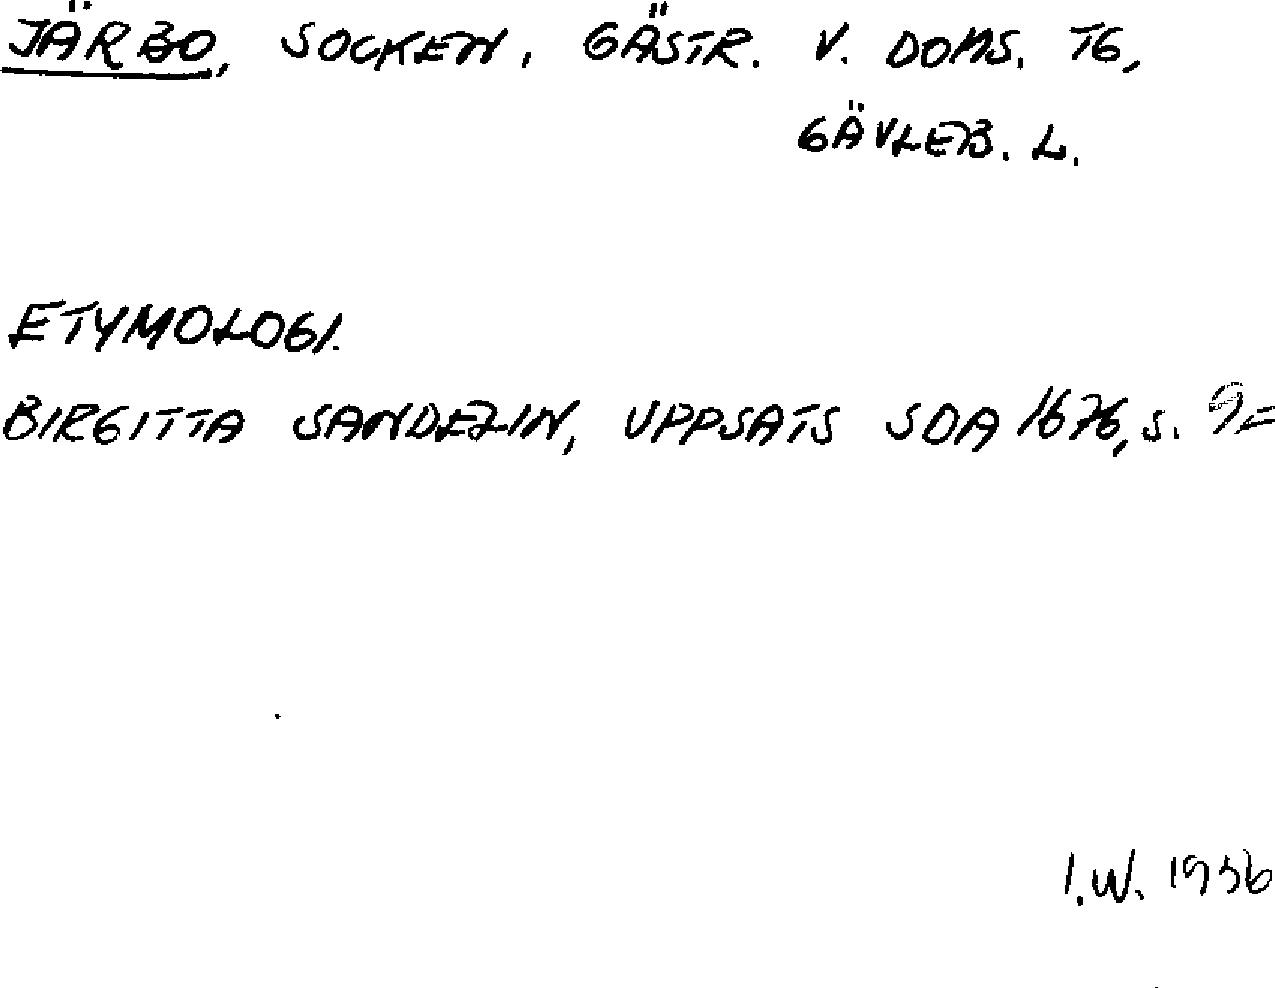 JÄRBO, SOCKEN, GÄSTR. V. DOMS. TG,
GÄVLEB. L.
ETYMOLOGI.
BIRGITTA SANDELIN, UPPSATS SOA 1676, S. 9-
I.W. 1956